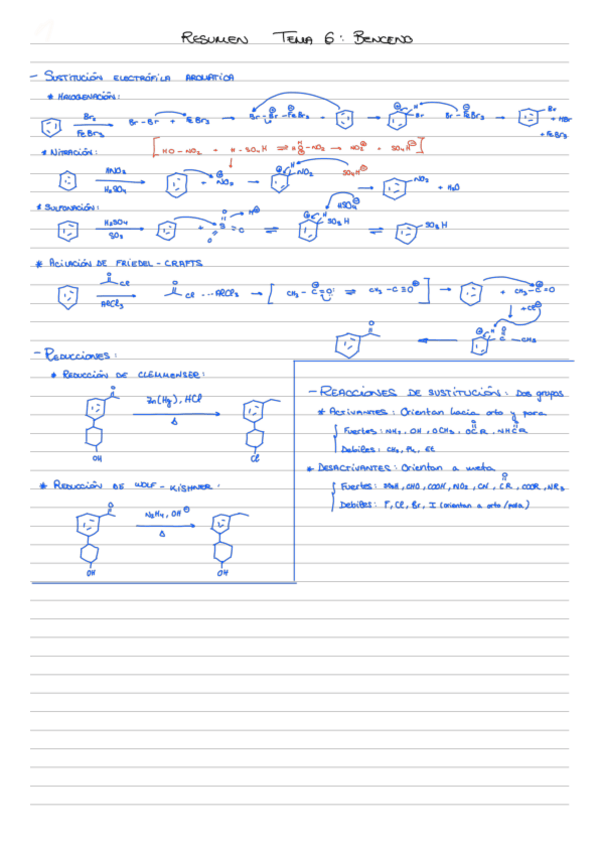 RESUMEN TEMA 6: BENCENO
- SUSTITUCIÓN ELECTRÓFILA AROMATICA
* HALOGENACIÓN:
Br₂
FeBr₃
Br-Br + FeBr₃ → Br-Br-FeBr₃ + → H Br Br-FeBr₃ → Br + HBr
+ FeBr₃
* NITRACIÓN:
[HO-NO₂ + H-SO₄H ⇌ H₂O-NO₂ → NO₂ + SO₄H]
HNO₃
H₂SO₄
+ NO₂ → H NO₂ SO₄H → NO₂ + H₂O
* SULFONACIÓN:
H₂SO₄
SO₃
HSO₄
SO₃H ⇌ SO₃H
* ACILACIÓN DE FRIEDEL-CRAFTS
Cl
AlCl₃
Cl ... AlCl₃ → [CH₃-C=O: ⇌ CH₃-C≡O] → + CH₃-C=O
H C-CH₃
- REDUCCIONES:
* REDUCCIÓN DE CLEMMENSER:
Zn(Hg), HCl
Δ
OH Cl
* REDUCCIÓN DE WOLF-KISHNER:
N₂H₄, OH
Δ
OH OH
- REACCIONES DE SUSTITUCIÓN: Dos grupos
* ACTIVANTES: Orientan hacia orto y para
Fuertes: NH₂, OH, OCH₃, OCR, NHCR
Debiles: CH₃, Ph, Et
* DESACTIVANTES: Orientan a meta
Fuertes: SO₃H, CHO, COOH, NO₂, CN, CR, COOR, NR₃
Debiles: F, Cl, Br, I (orientan a orto/para)